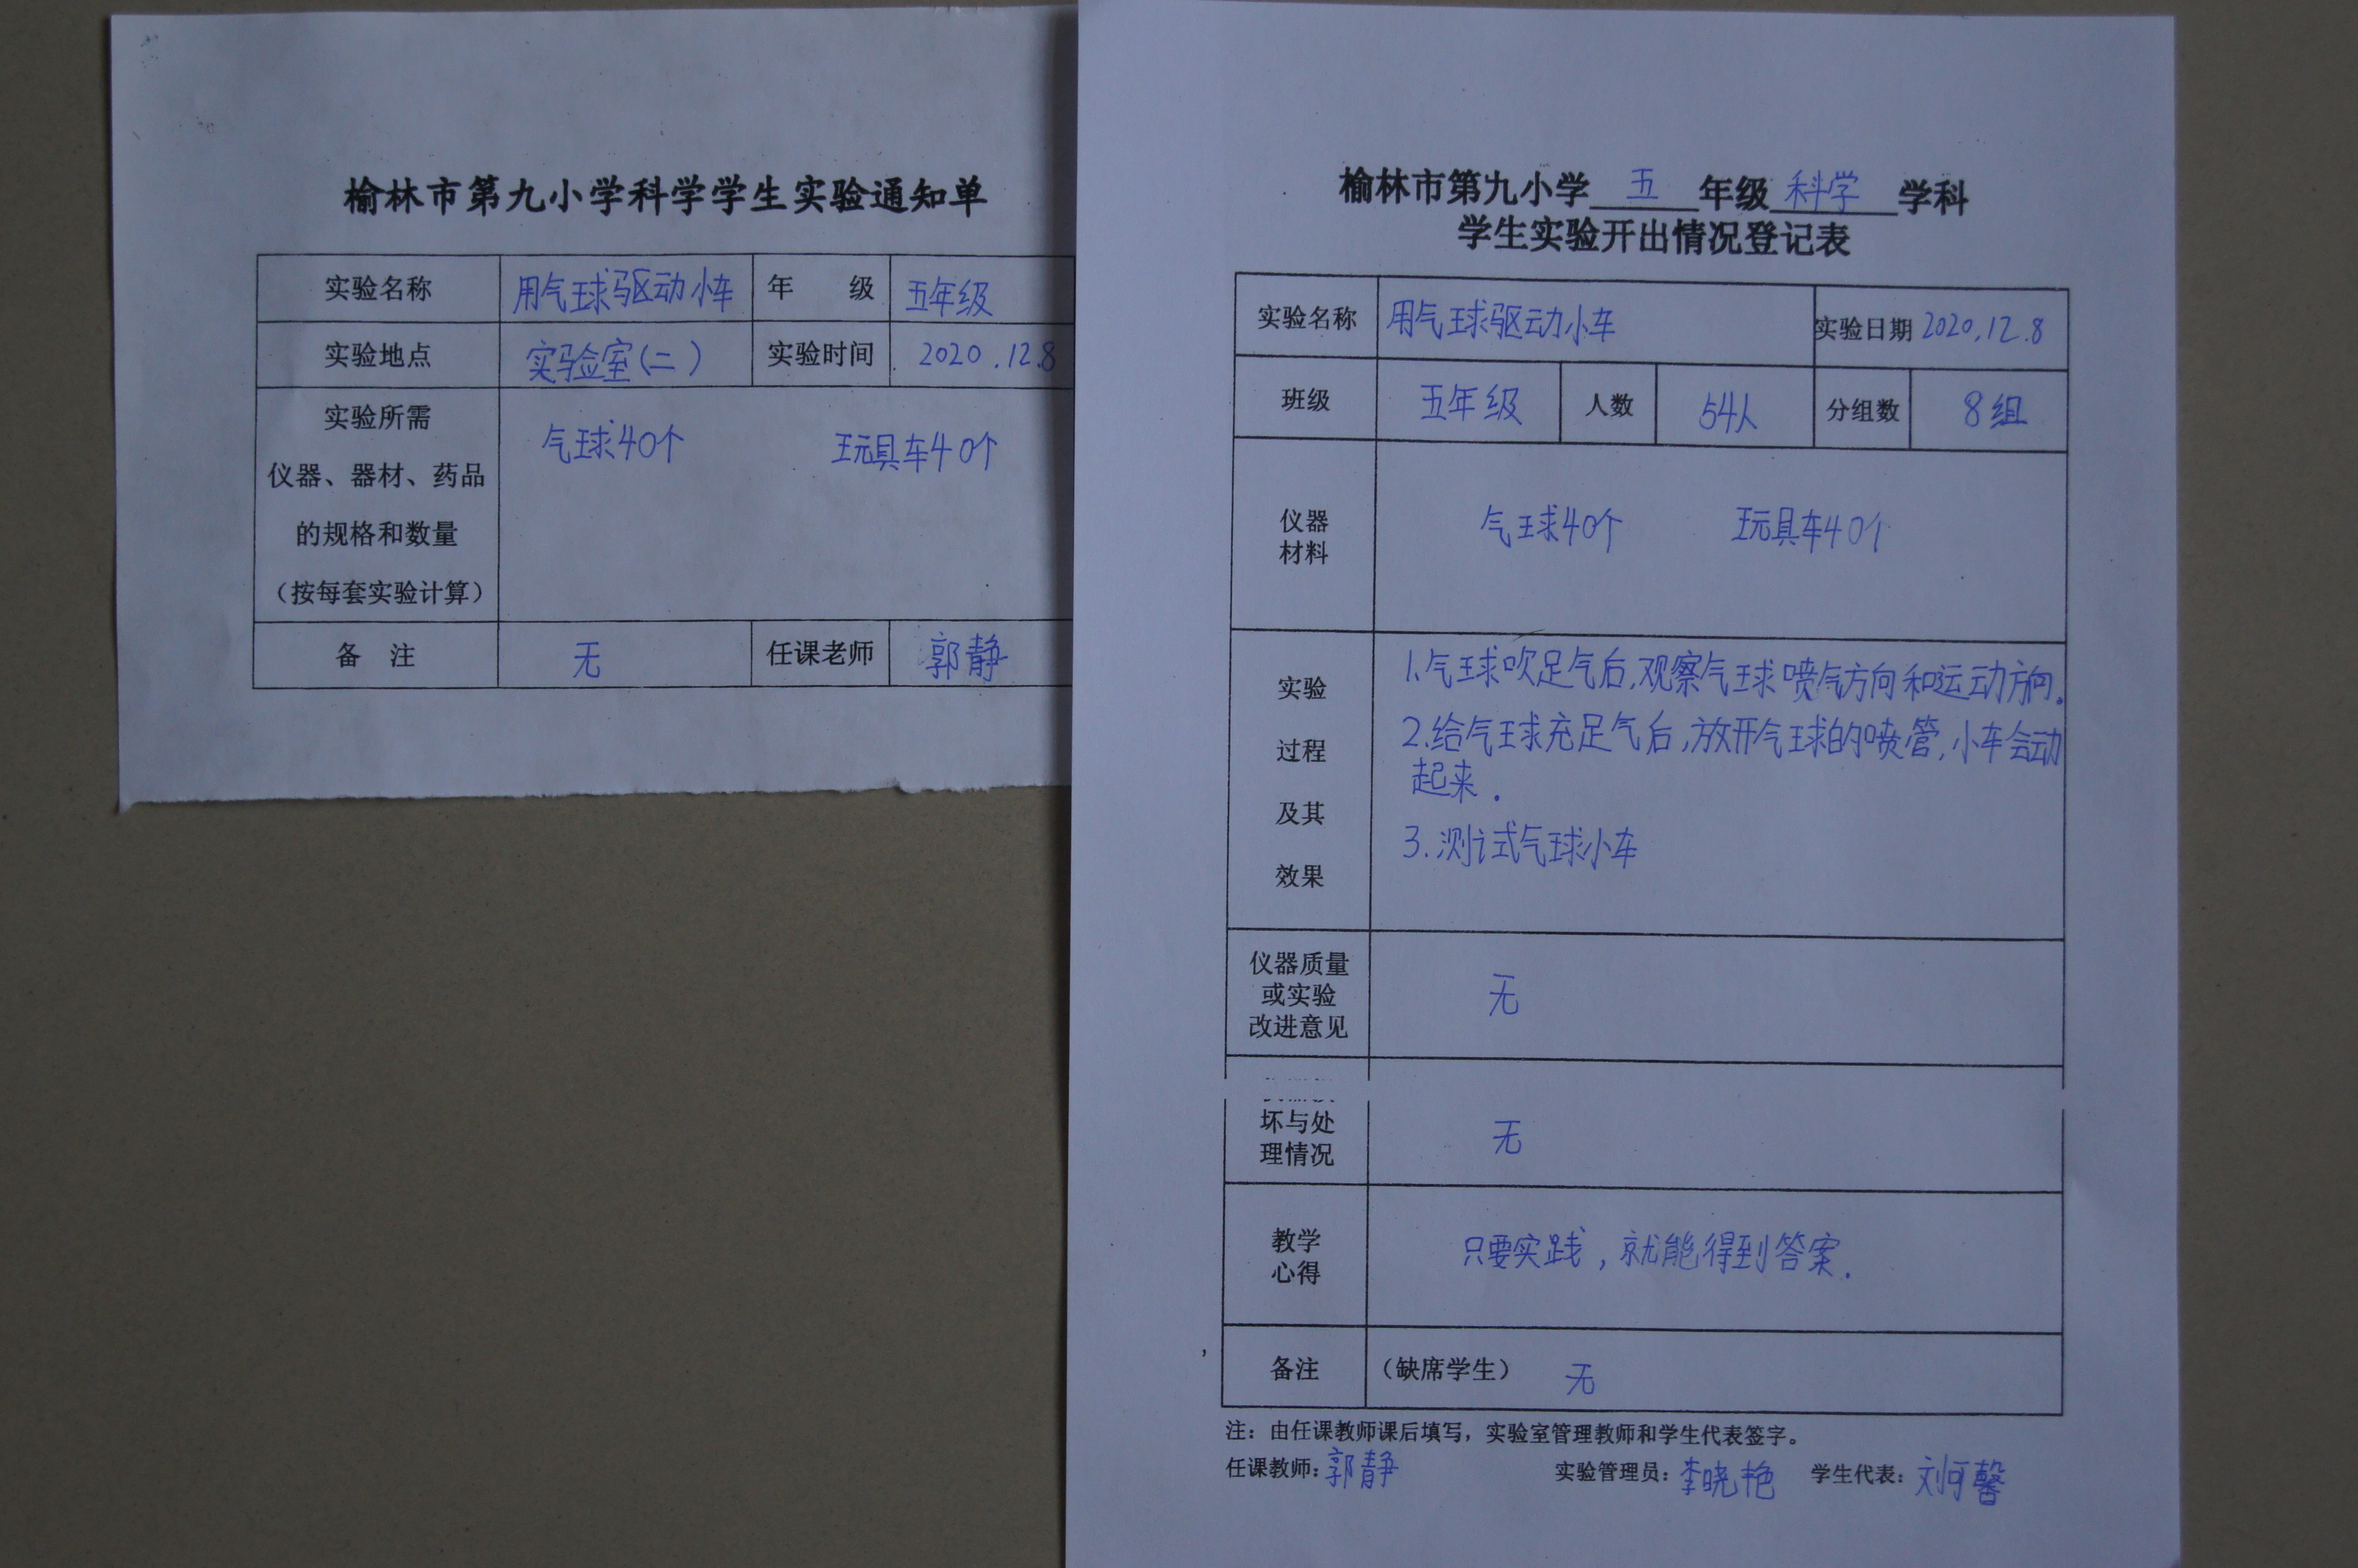 榆林市第九小学科学学生实验通知单
实验名称 用气球驱动小车 年 级 五年级
实验地点 实验室(二) 实验时间 2020.12.8
实验所需
仪器、器材、药品
的规格和数量
（按每套实验计算）
气球40个 玩具车40个
备 注 无 任课老师 郭静
榆林市第九小学 五 年级 科学 学科
学生实验开出情况登记表
实验名称 用气球驱动小车 实验日期 2020.12.8
班级 五年级 人数 54人 分组数 8组
仪器
材料
气球40个 玩具车40个
实验
过程
及其
效果
1.气球吹足气后,观察气球喷气方向和运动方向.
2.给气球充足气后,放开气球的喷管,小车会动
起来.
3.测试气球小车
仪器质量
或实验
改进意见
无
坏与处
理情况
无
教学
心得
只要实践,就能得到答案.
备注 （缺席学生） 无
注：由任课教师课后填写，实验室管理教师和学生代表签字。
任课教师：郭静 实验管理员：李晓艳 学生代表：刘可馨